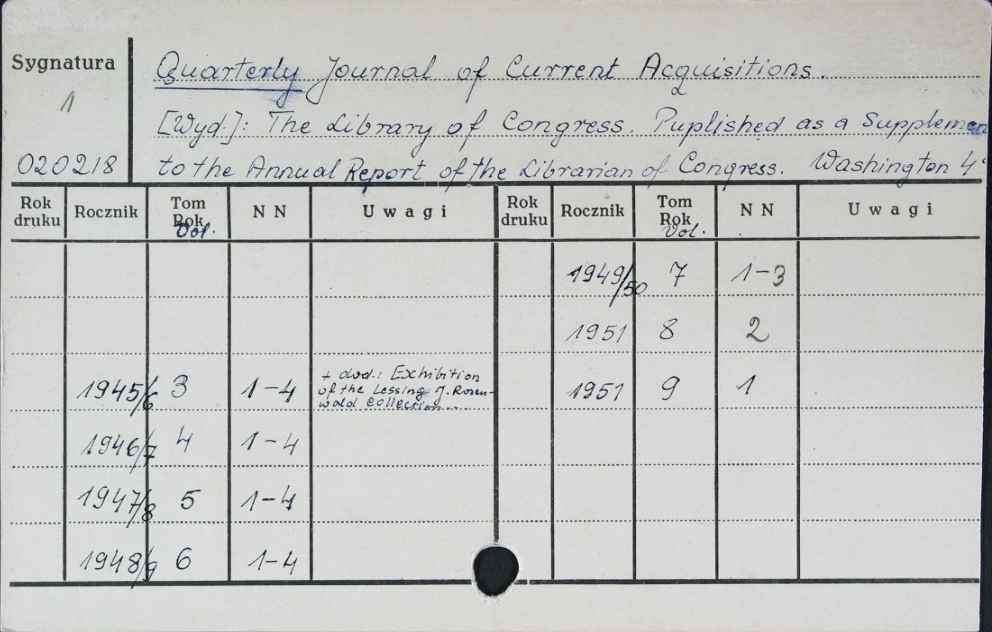 Sygnatura
1
020218
Quarterly Journal of Current Acquisitions.
[Wyd.]: The Library of Congress. Puplished as a Supplemen
to the Annual Report of the Librarian of Congress. Washington 4°
Rok druku Rocznik Tom Rok Vol. NN Uwagi Rok druku Rocznik Tom Rok Vol. NN Uwagi
1949/50 7 1-3
1951 8 2
1945/6 3 1-4 + dod.: Exhibition
of the Lessing J. Rosen-
wald Collection...
1951 9 1
1946/7 4 1-4
1947/8 5 1-4
1948/9 6 1-4